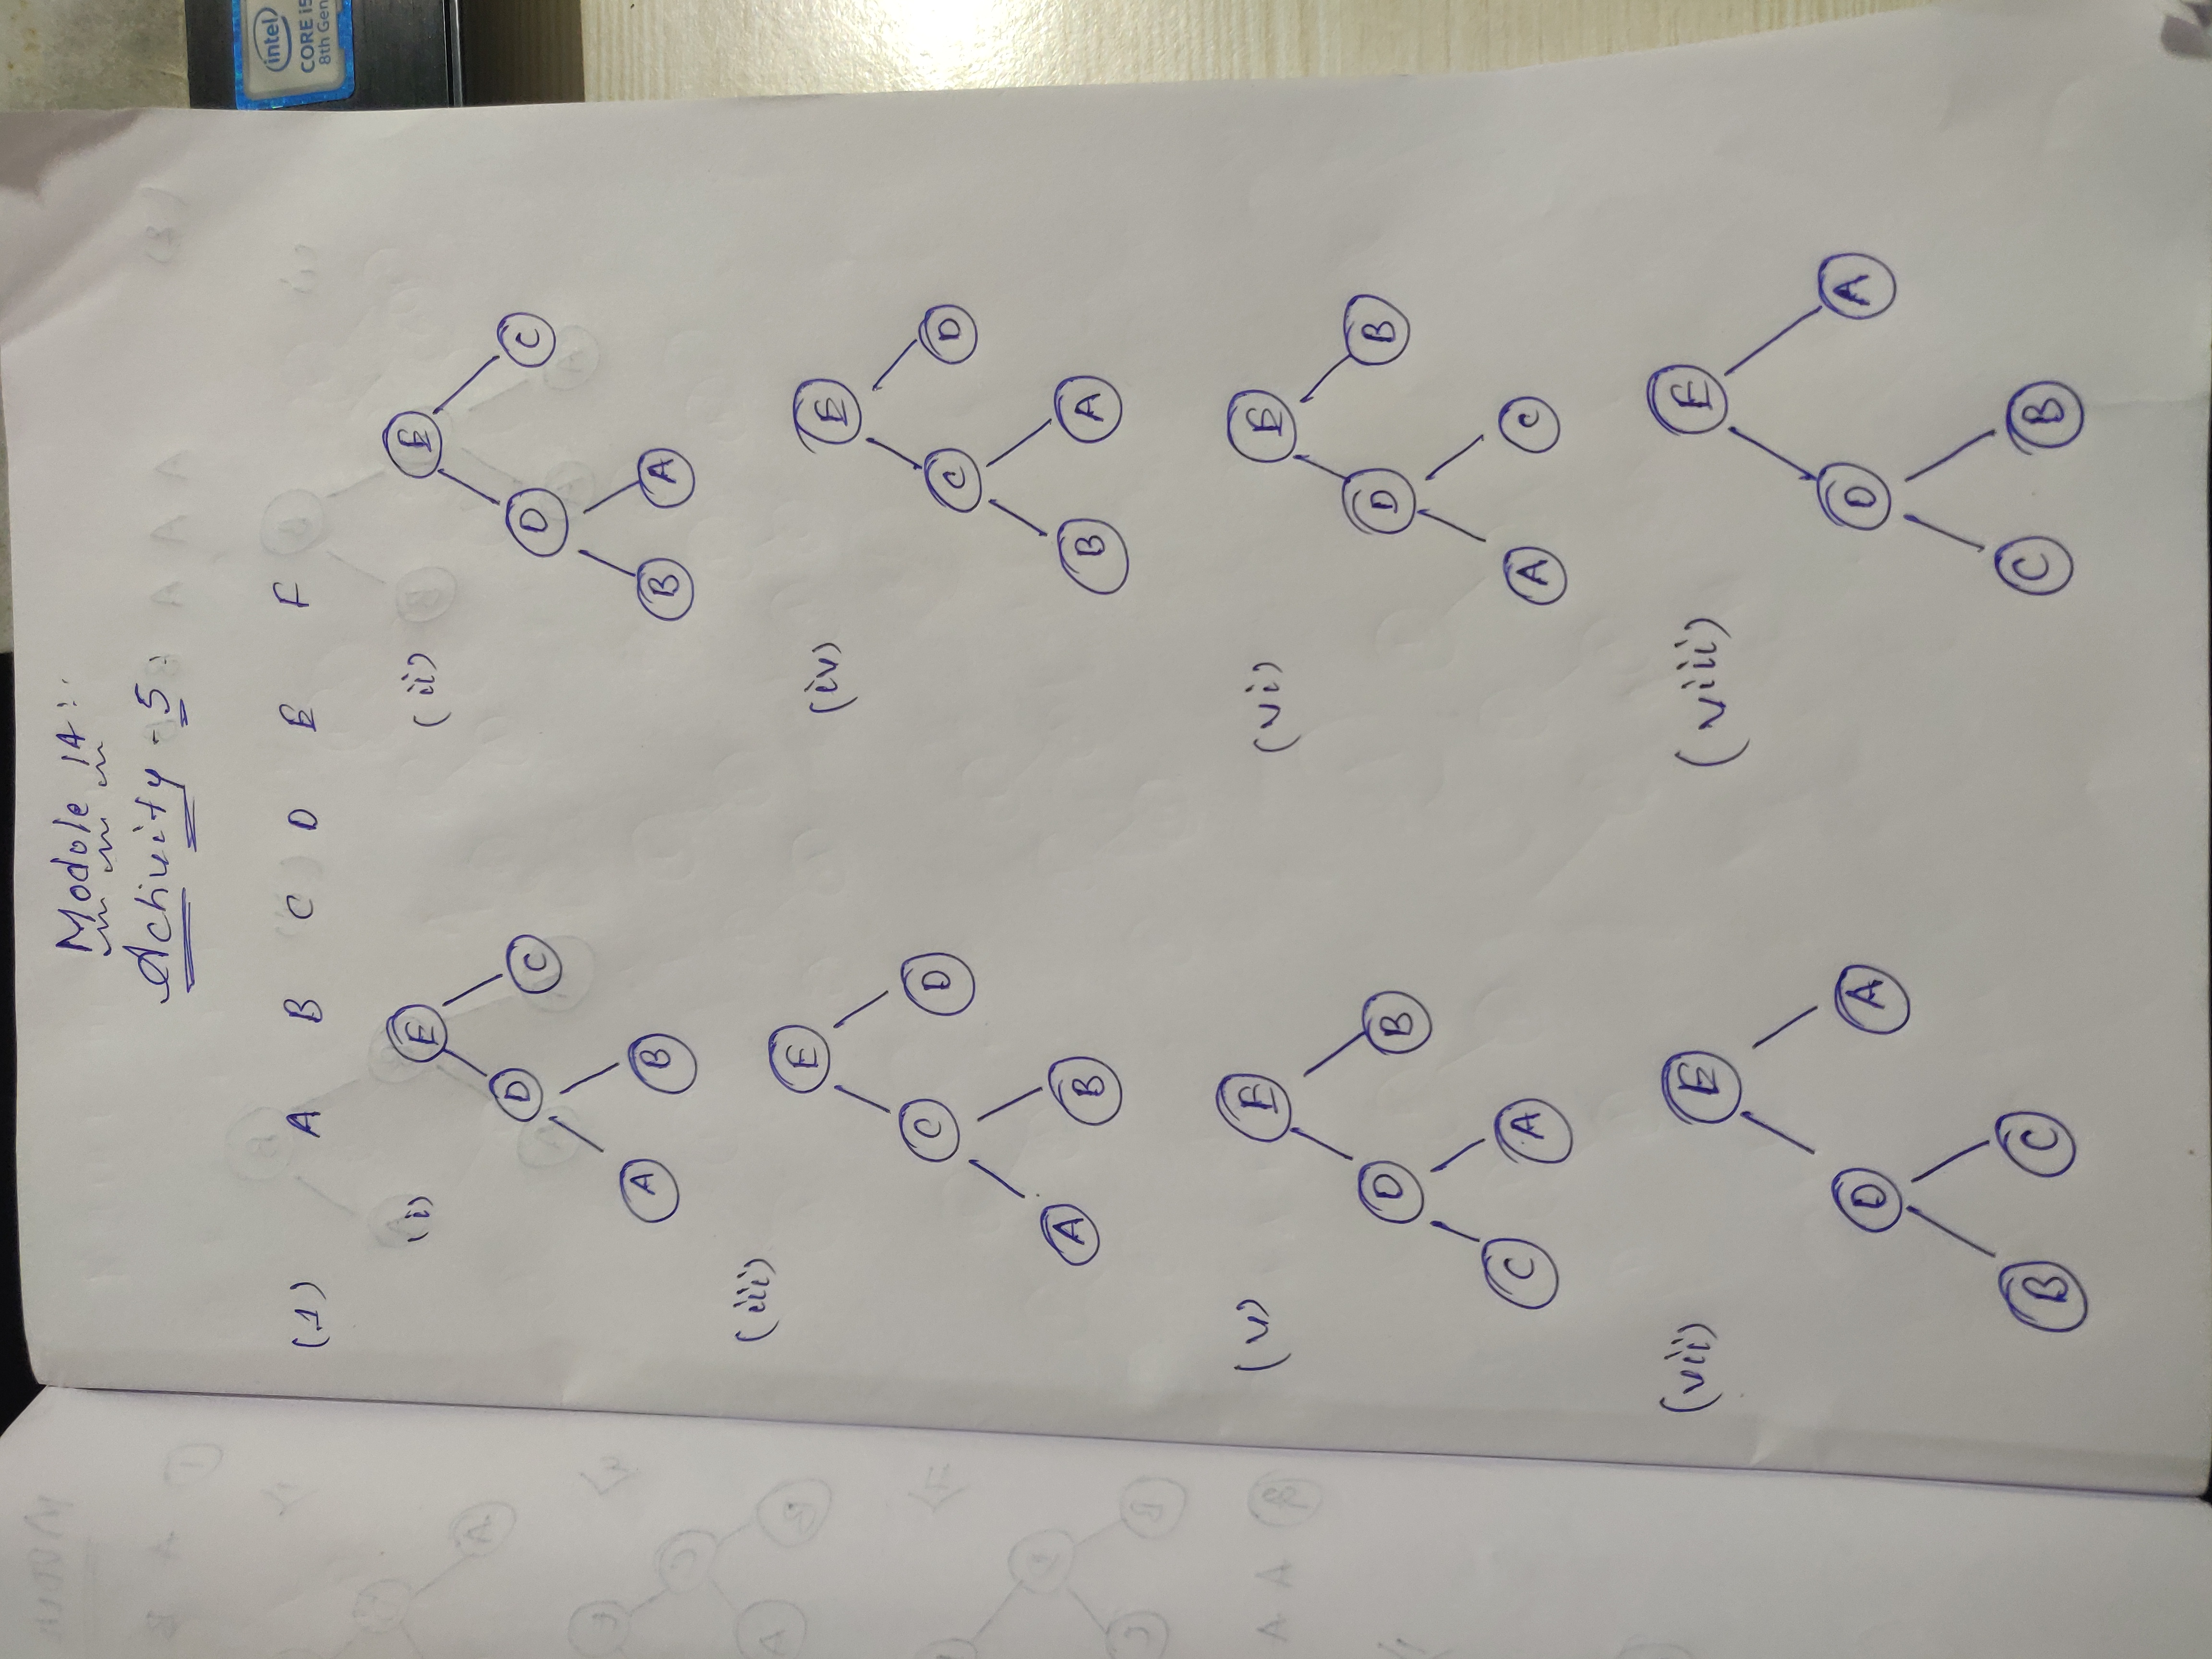 Module 14:
Activity - 5:
(1) A B C D E F
(i) E
D C
A B
(ii) E
D C
B A
(iii) E
C D
A B
(iv) E
C D
B A
(v) E
D B
C A
(vi) E
D B
A C
(vii) E
D A
B C
(viii) E
D A
C B
intel
CORE i5
8th Gen